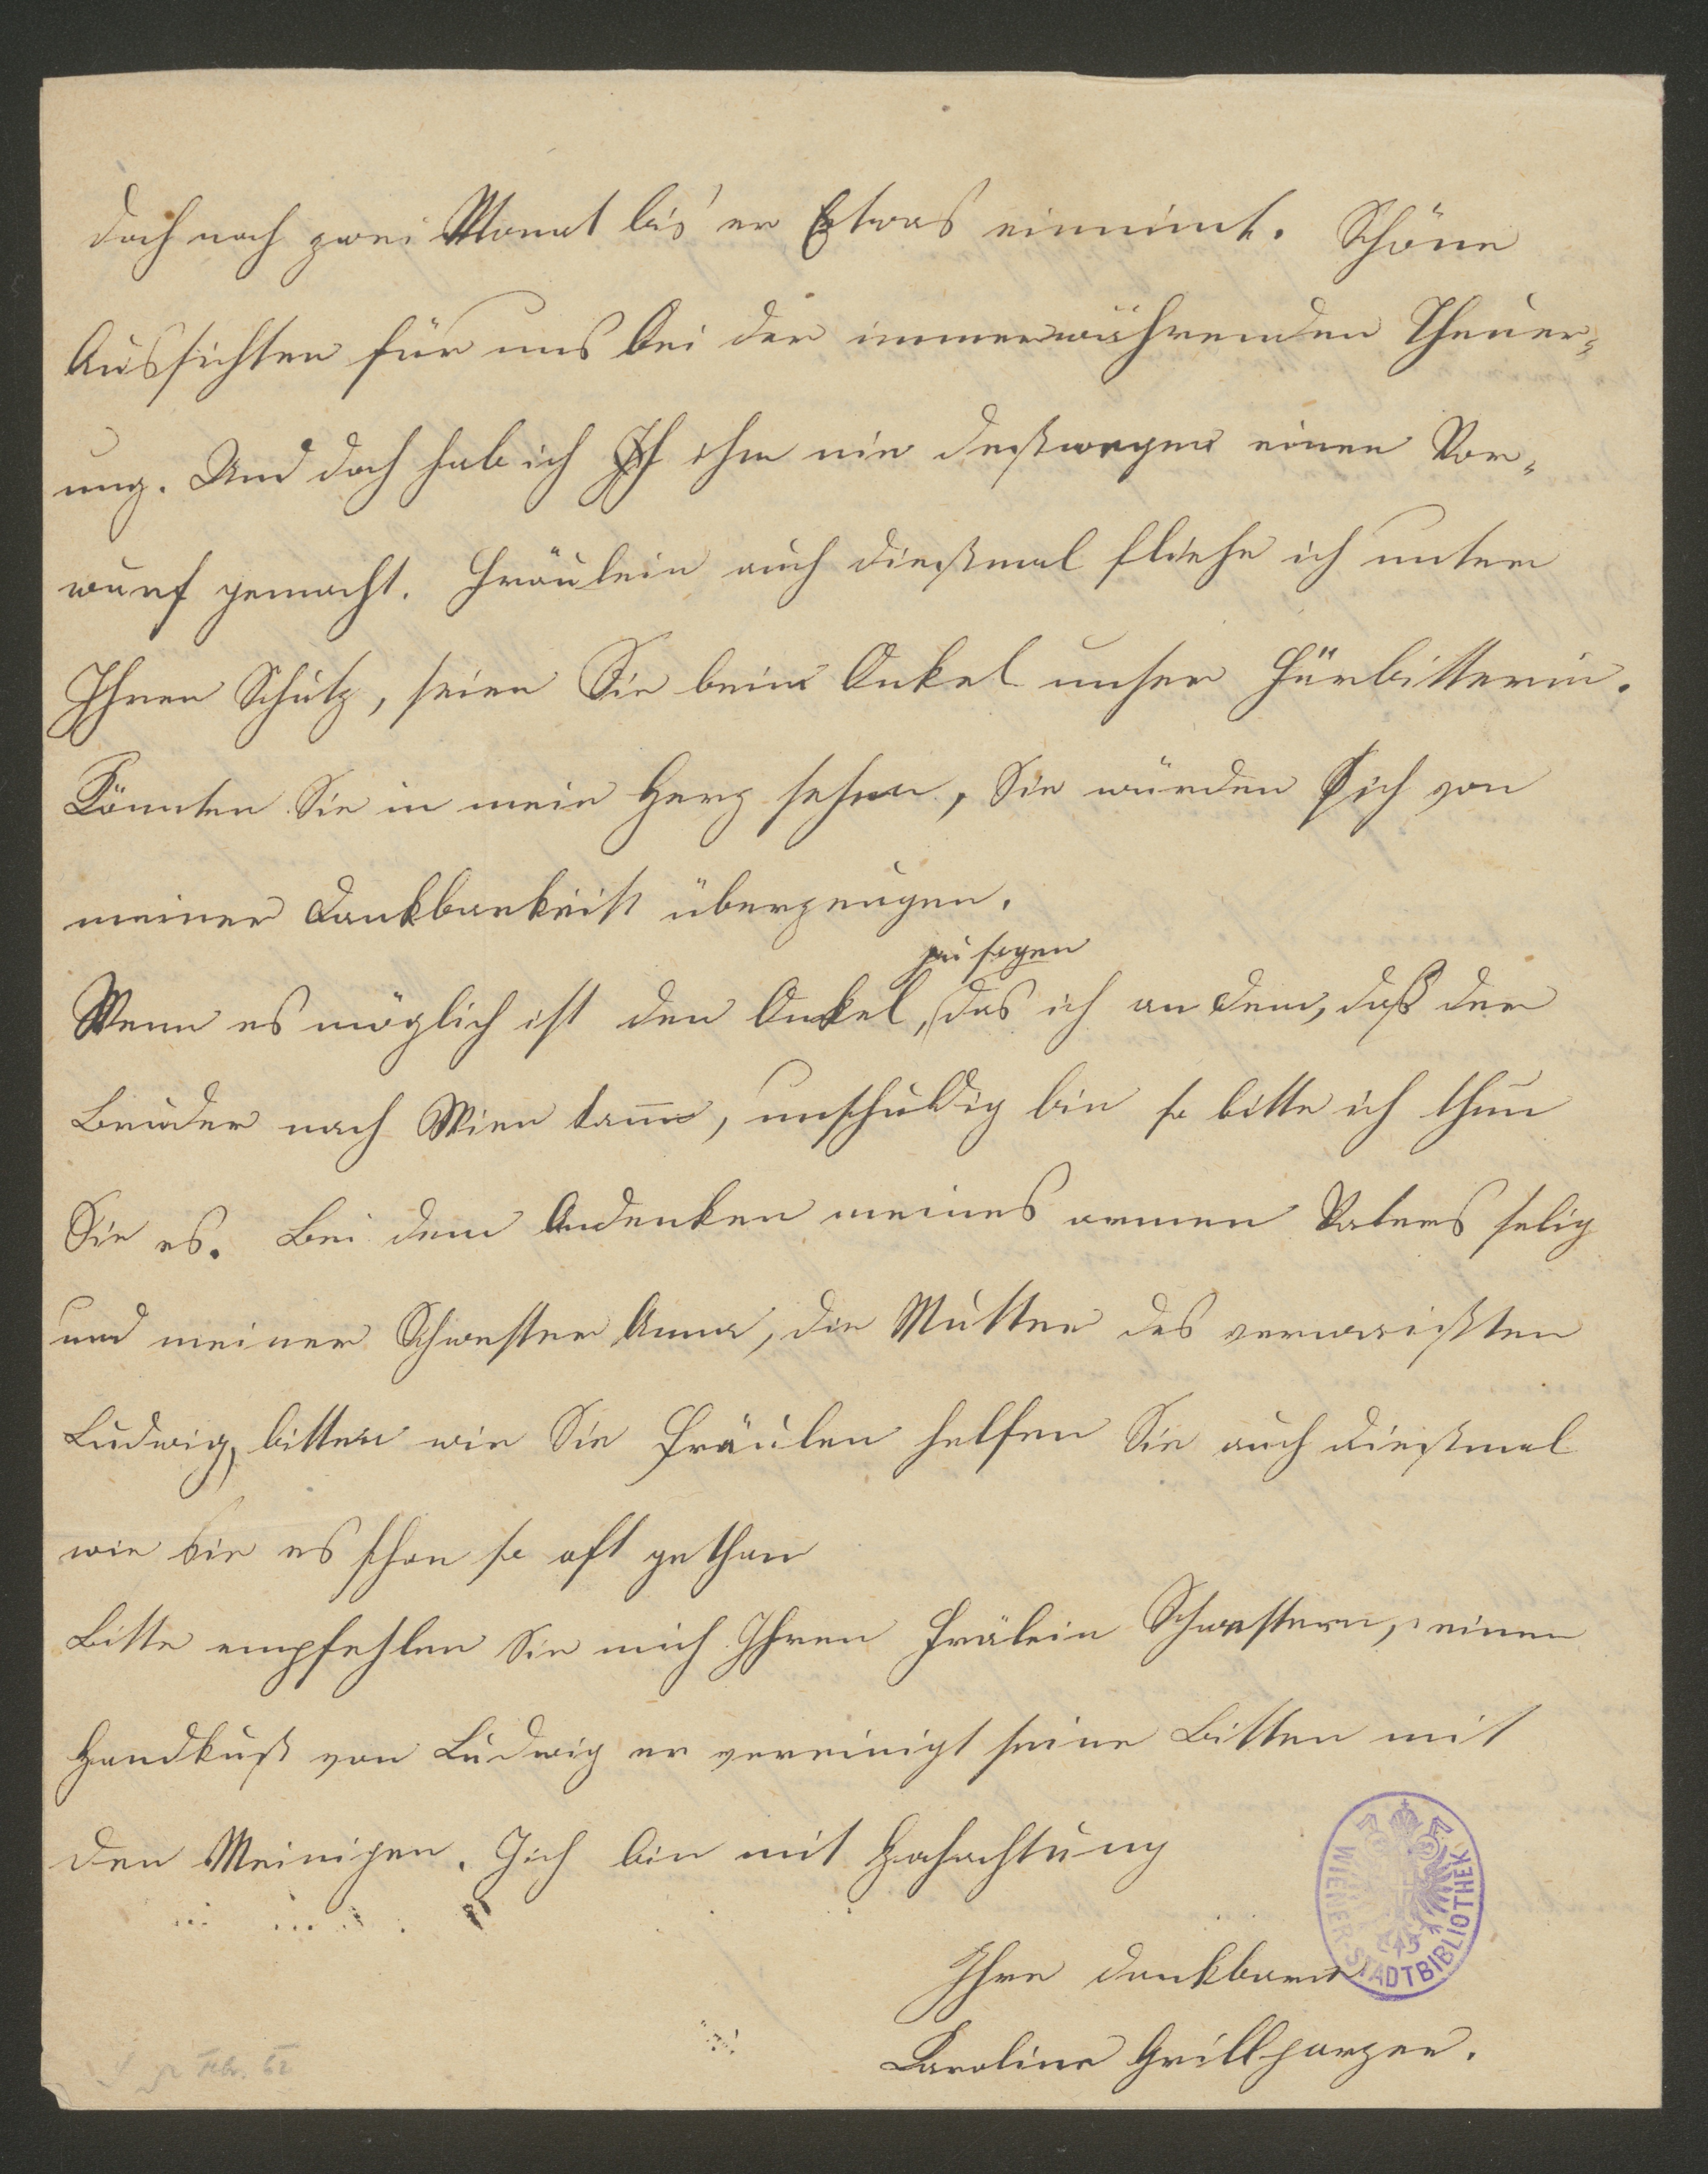 doch noch zwei Monat bis er Etwas einnimt. Schöne
Aussichten für uns bei der immerwährenden Theuer-
ung. Und doch hab ich ihm nie deßwegen einen Vor-
wurf gemacht. Fräulein auch dießmal fliehe ich unter
Ihren Schutz, seien Sie beim Onkel unser Fürbitterin.
Könnten Sie in mein Herz sehen, Sie würden sich von
meiner Dankbarkeit überzeugen.
zu sagen
Wenn es möglich ist den Onkel, das ich an dem, daß der
Bruder nach Wien kamm, unschuldig bin so bitte ich thun
Sie es. Bei dem Andenken meines armen Vaters selig
und meiner Schwester Anna, die Mutter des verwaißten
Ludwig, bitten wir Sie Fräulen helfen Sie auch dießmal
wie Sie es schon so oft gethan
Bitte empfehlen Sie mich Ihren Frälein Schwestern, einen
Handkuß von Ludwig er vereinigt seine Bitten mit
den Meinigen. Ich bin mit Hochachtung
Ihre dankbare
Karoline Grillparzer.
WIENER STADTBIBLIOTHEK
Febr. 62